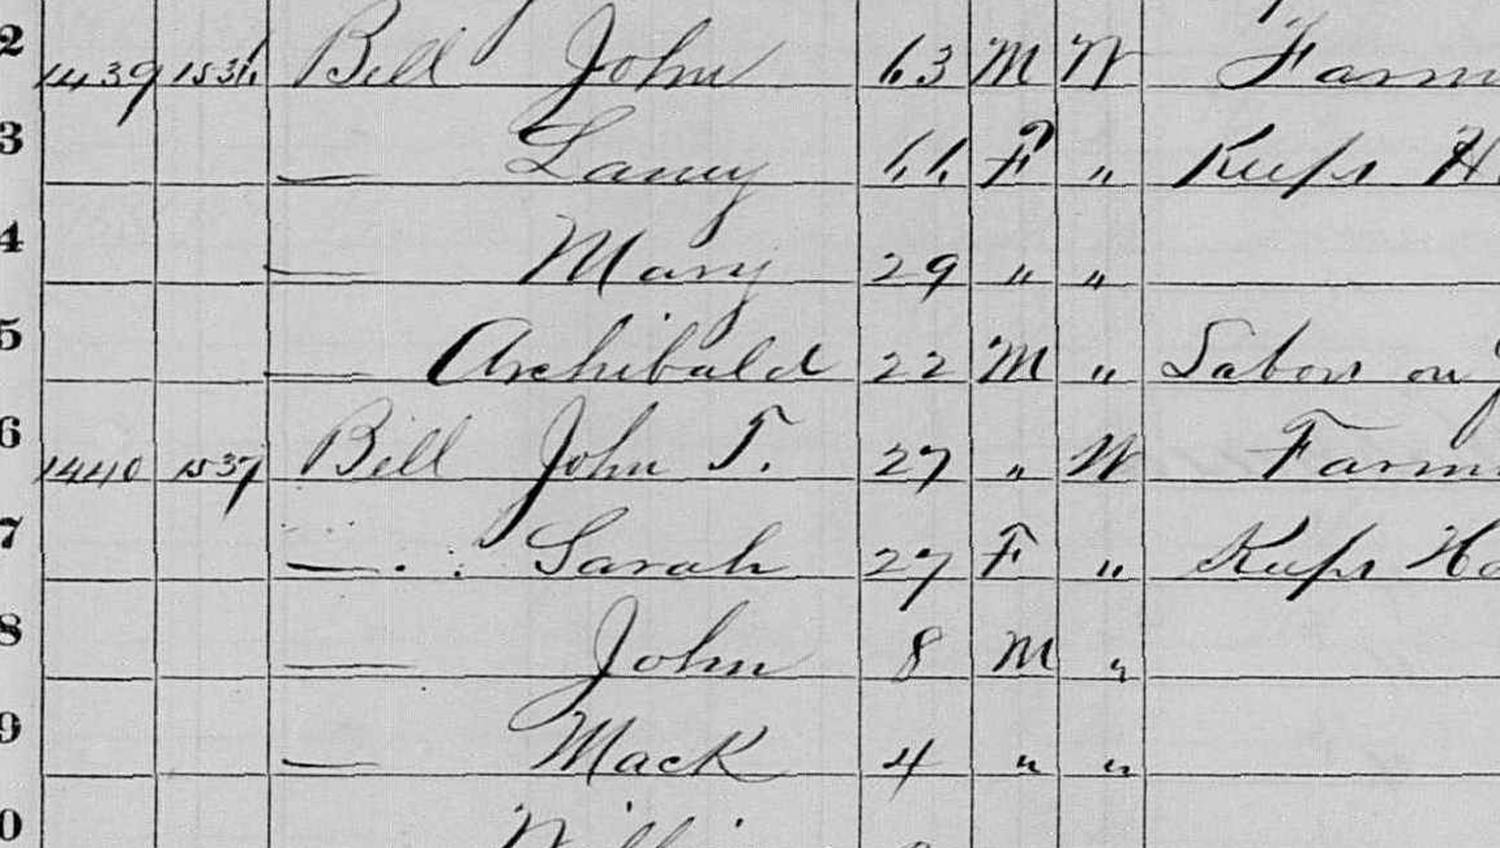 2 1439 1536 Bell John 63 M W Farm
3 — Laney 66 F " Keeps H
4 — Mary 29 " "
5 — Archibald 22 M " Labor on
6 1440 1537 Bell John T. 27 " W Farm
7 — Sarah 27 F " Keeps Ho
8 — John 8 M "
9 — Mack 4 " "
0